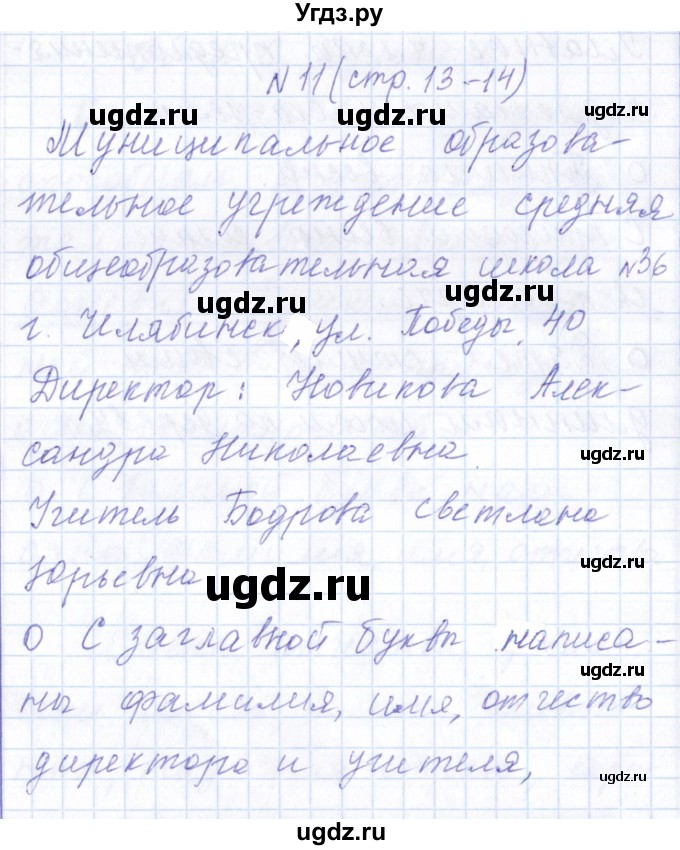 Угдз.ру
N 11 (стр. 13-14)
ugdz.ru ugdz.ru ugdz.ru
Муниципальное образова-
тельное учреждение средняя
общеобразовательная школа N36
ugdz.ru ugdz.ru
г. Челябинск, ул. Победы, 40
Директор: Новикова Алек-
сандра Николаевна
ugdz.ru
Учитель Бодрова Светлана
Юрьевна
ugdz.ru ugdz.ru
О С заглавной букв написа-
ны фамилия, имя, отчество
ugdz.ru
директора и учителя,
ugdz.ru
ugdz.ru